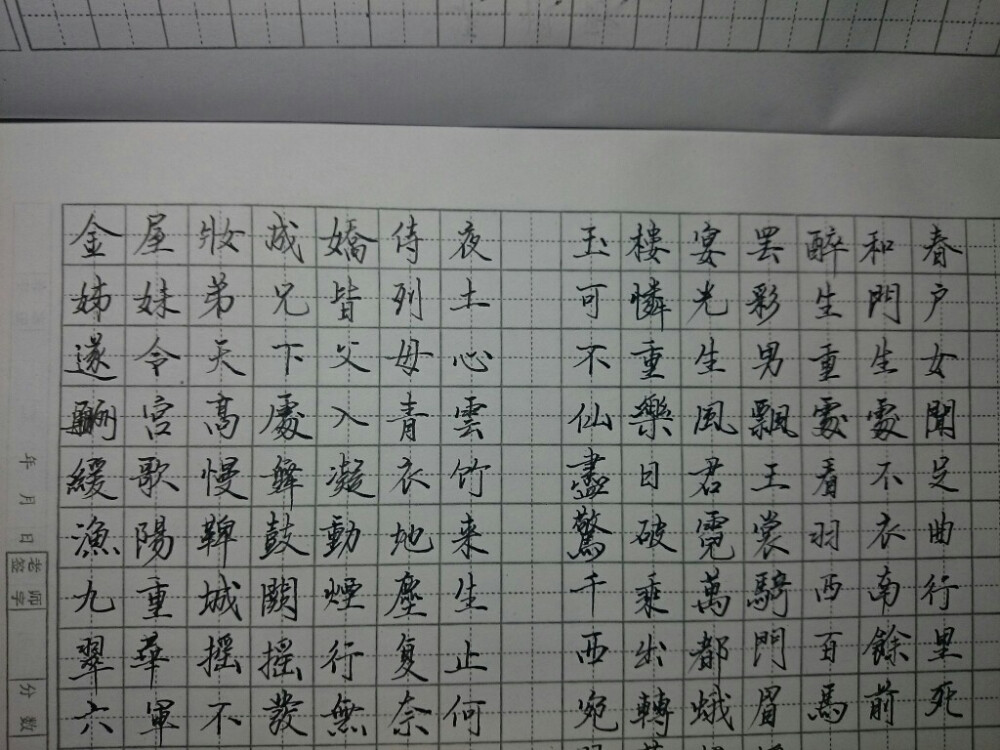 金屋妝成嬌侍夜 玉樓宴罢醉和春
姊妹弟兄皆列土 可憐光彩生門户
遂令天下父母心 不重生男重生女
驪宮高處入青雲 仙樂風飄處處聞
緩歌慢舞凝衣竹 盡日君王看不足
漁陽鞞鼓動地来 驚破霓裳羽衣曲
九重城闕煙塵生 千乘萬騎西南行
翠華摇摇行复止 西出都門百餘里
六軍不發無奈何 宛轉蛾眉馬前死
年 月 日
老師签字
分數